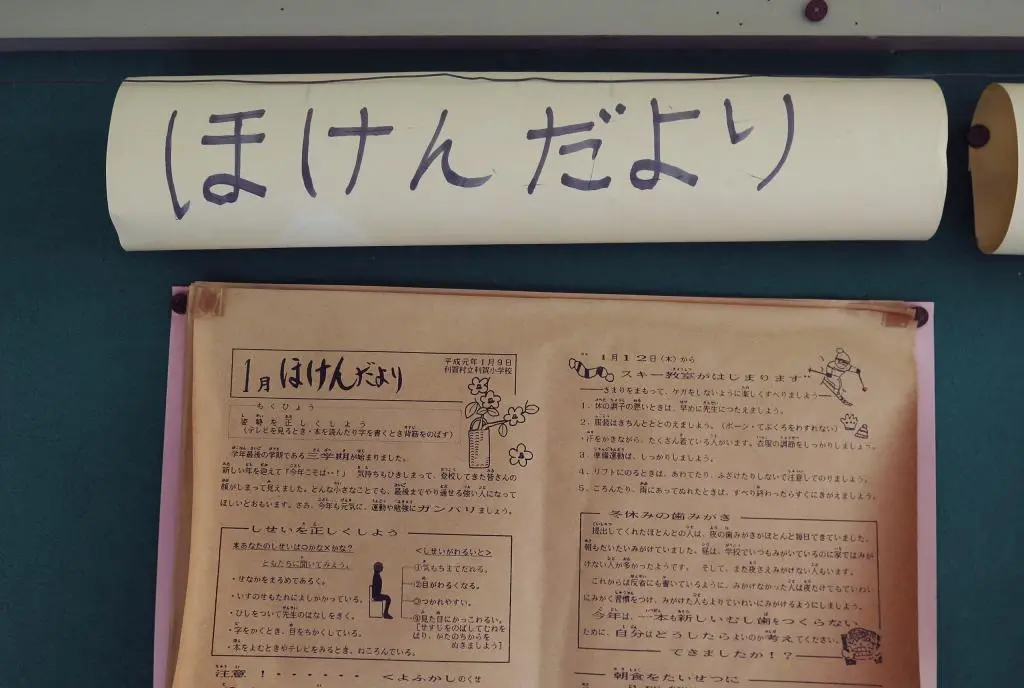 ほけんだより
1月 ほけんだより
平成元年1月9日
利賀村立利賀小学校
もくひょう
姿勢を正しくしよう
(テレビを見るとき・本を読んだり字を書くとき背筋をのばす)
学年最後の学期である三学期が始まりました。
新しい年を迎えて「今年こそは‥!」 気持ちもひきしまって、登校してきた皆さんの
顔がしまって見えました。どんな小さなことでも、最後までやり通せる強い人になって
ほしいとおもいます。さあ、今年も元気に、運動や勉強にガンバリましょう。
しせいを正しくしよう
本あなたのしせいは○かな×かな?
ともだちに聞いてみよう。
・せなかをまるめてあるく。
・いすのせもたれによしかかっている。
・ひじをついて先生のはなしをきく。
・字をかくとき、目をちかくしている。
・本をよむときやテレビをみるとき、ねころんでいる。
<しせいがわるいと>
①気もちまでだれる。
②目がわるくなる。
③つかれやすい。
④見た目にかっこわるい。
[せすじをのばしてむねを
はり、かたのちからを
ぬきましよう]
注意!・・・・・・ <よふかしのくせ
1月12日(木)から
スキー教室がはじまります
きまりをまもって、ケガをしないように楽しくすべりましょう
1．体の調子の悪いときは、早めに先生につたえましょう。
2．服装はきちんとととのえましょう。(ボーシ・てぶくろをわすれない)
・汗をかきながら、たくさん着ている人がいます。衣服の調節をしっかりしましょう。
3．準備運動は、しっかりしましょう。
4．リフトにのるときは、あわてたり、ふざけたりしないで注意してのりましょう。
5．ころんたり、雨にあってぬれたときは、すべり終わったらすぐにきがえましょう。
冬休みの歯みがき
提出してくれたほとんどの人は、夜の歯みがきがほとんど毎日できていました。
朝もだいたいみがけていました。昼は、学校でいつもみがいているのに家ではみが
けない人が多かったようです。 そして、まだ夜さえみがけない人もいます。
これからは反省にも書いているように、みがけなかった人は夜だけでもていねい
にみがく習慣をつけ、みがけた人もよりていねいにみがけるようにしましよう。
今年は、一本も新しいむし歯をつくらない
ために、自分はどうしたらよいのか考えてください。
できましたか!?
朝食をたいせつに